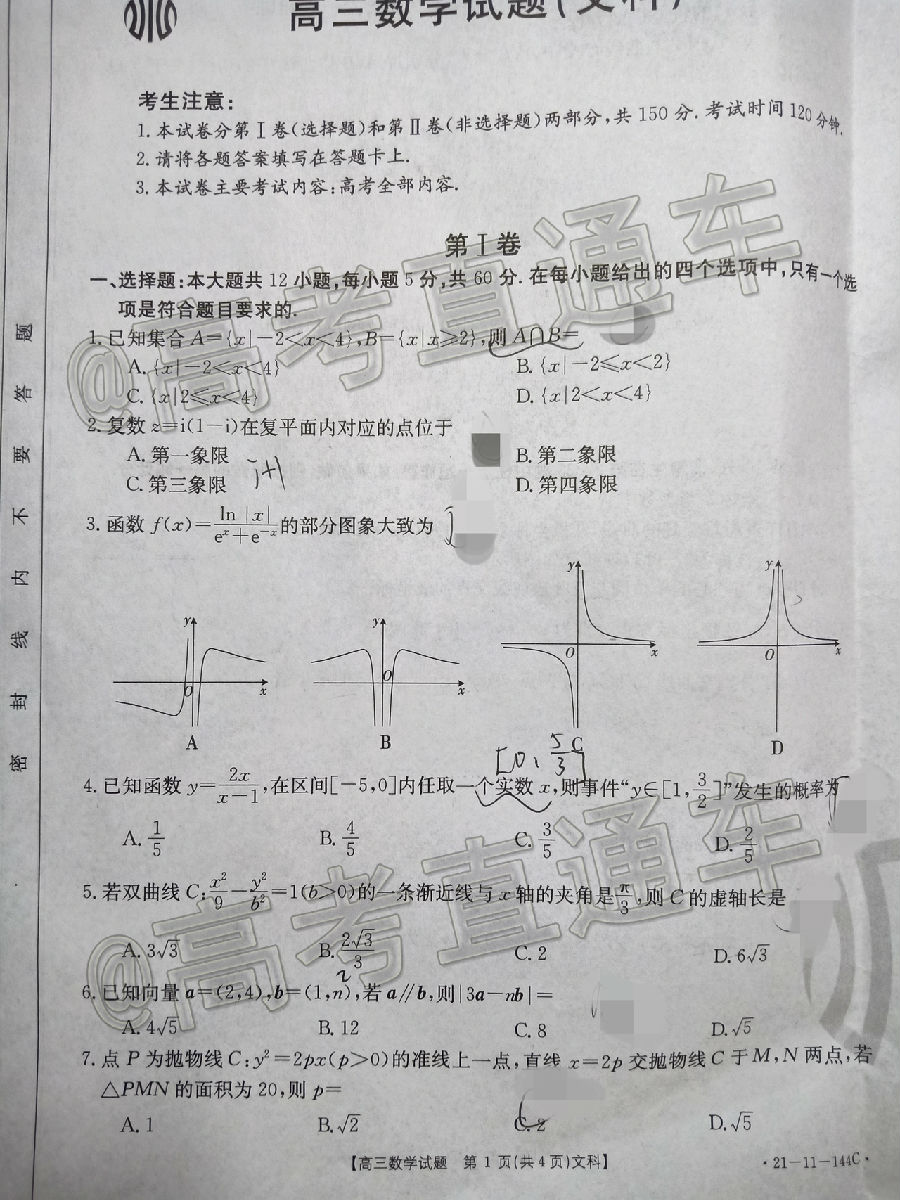 高三数学试题(文科)
考生注意:
1.本试卷分第Ⅰ卷(选择题)和第Ⅱ卷(非选择题)两部分,共150分.考试时间120分钟.
2.请将各题答案填写在答题卡上.
3.本试卷主要考试内容:高考全部内容.
第Ⅰ卷
一、选择题:本大题共12小题,每小题5分,共60分.在每小题给出的四个选项中,只有一个选
项是符合题目要求的.
1.已知集合A={x|-2<x<4},B={x|x≥2},则A∩B=
A.{x|-2<x<4} B.{x|-2≤x<2}
C.{x|2≤x<4} D.{x|2<x<4}
2.复数z=i(1-i)在复平面内对应的点位于
A.第一象限 B.第二象限
C.第三象限 i+1 D.第四象限
3.函数f(x)=\frac{ln|x|}{e^x+e^{-x}}的部分图象大致为
y O x y O x y O x y O x
A B C D
[0,\frac{5}{3}]
4.已知函数y=\frac{2x}{x-1},在区间[-5,0]内任取一个实数x,则事件“y∈[1,\frac{3}{2}]”发生的概率为
A.\frac{1}{5} B.\frac{4}{5} C.\frac{3}{5} D.\frac{2}{5}
5.若双曲线C:\frac{x²}{9}-\frac{y²}{b²}=1(b>0)的一条渐近线与x轴的夹角是\frac{π}{3},则C的虚轴长是
A.3√3 B.\frac{2√3}{3} C.2 D.6√3
2
6.已知向量a=(2,4),b=(1,n),若a∥b,则|3a-nb|=
A.4√5 B.12 C.8 D.√5
7.点P为抛物线C:y²=2px(p>0)的准线上一点,直线x=2p交抛物线C于M,N两点,若
△PMN的面积为20,则p=
A.1 B.√2 C.2 D.√5
【高三数学试题 第1页(共4页)文科】 ·21-11-144C·
密封线内不要答题
@高考直通车
@高考直通车